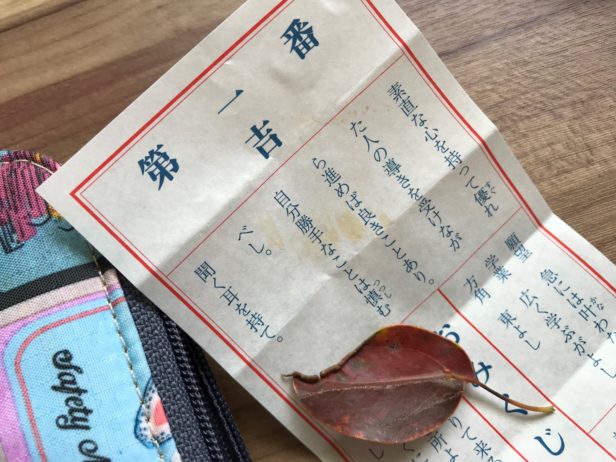 第一番
吉
素直な心を持って優れ
た人の導きを受けなが
ら進めば良きことあり。
自分勝手なことは慎む
べし。
聞く耳を持て。
願望 急には叶わ
学業 広く学ぶがよし
方角 東よし
おみくじ
りて来
所よ
Safety